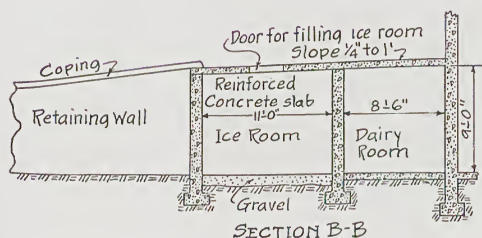 Door for filling ice room
Slope 1/4" to 1'
Coping
Reinforced
Concrete slab
11'-0"
8'-6"
9'-0"
Retaining Wall
Ice Room
Dairy
Room
Gravel
SECTION B-B